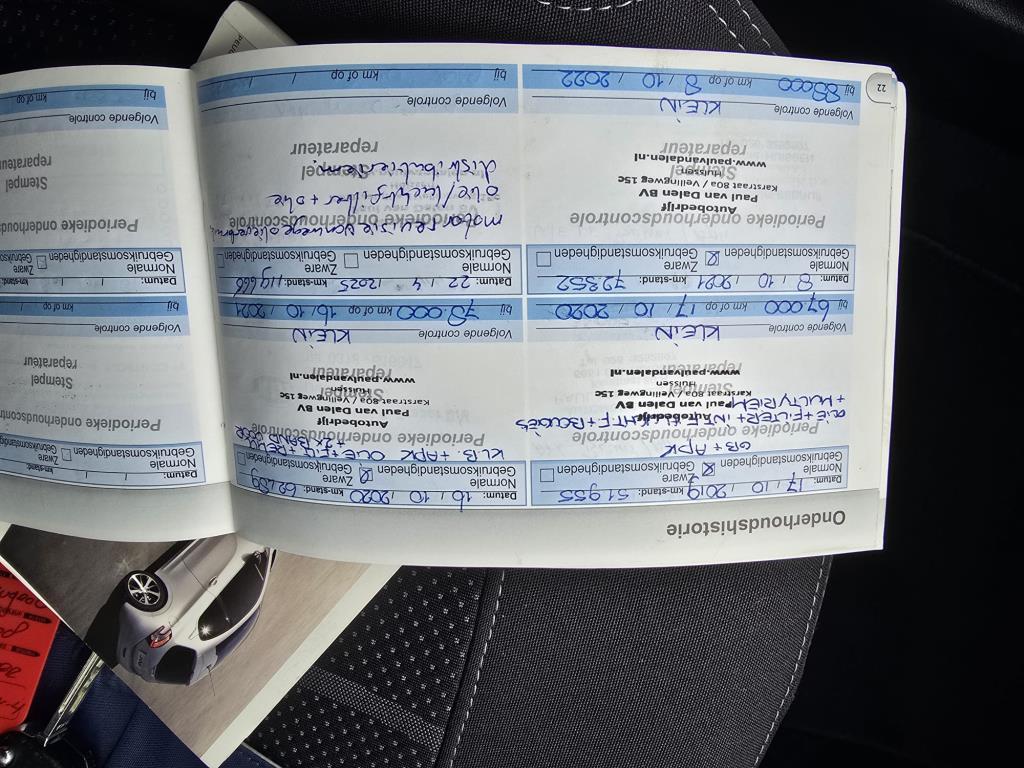 Onderhoudshistorie
Datum: 17 / 10 / 2019 km-stand: 51955
Normale
Gebruiksomstandigheden
Zware
Gebruiksomstandigheden
GB + APK
Periodieke onderhoudscontrole
OLIE + FILTER + INT + LUCHTF + BOUGIES
+ MULTYRIEM
Autobedrijf
Paul van Dalen BV
Karstraat 80a / Veilingweg 15c
Huissen
www.paulvandalen.nl
Stempel
reparateur
KLEIN
Volgende controle
bij 67000 km of op 17 / 10 / 2020
Datum: 16 / 10 / 2020 km-stand:
Normale
Gebruiksomstandigheden
Zware
Gebruiksomstandigheden
KLB. + APK OLIE + FILT +
+ 2x BAND VOOR
Periodieke onderhoudscontrole
Autobedrijf
Paul van Dalen BV
Karstraat 80a / Veilingweg 15c
Huissen
www.paulvandalen.nl
Stempel
reparateur
KLEIN
Volgende controle
bij 78.000 km of op 16 / 10 / 2021
Datum: 8 / 10 / 2021 km-stand: 72352
Normale
Gebruiksomstandigheden
Zware
Gebruiksomstandigheden
Periodieke onderhoudscontrole
Autobedrijf
Paul van Dalen BV
Karstraat 80a / Veilingweg 15c
Huissen
www.paulvandalen.nl
Stempel
reparateur
KLEIN
Volgende controle
bij 88.000 km of op 8 / 10 / 2022
22
Datum: 22 / 4 / 2025 km-stand: 119666
Normale
Gebruiksomstandigheden
Zware
Gebruiksomstandigheden
motor revisie vanwege
Periodieke onderhoudscontrole
olie/luchtfilter + olie
distributieriem
Stempel
reparateur
Volgende controle
bij / km of op / /
Datum: / / km-stand:
Normale
Gebruiksomstandigheden
Zware
Gebruiksomstandig
Periodieke onderhoudscont
Stempel
reparateur
Volgende controle
bij km of op /
Datum: / / km-stand:
Normale
Gebruiksomstandigheden
Zware
Gebruikso
Periodieke onderhoudsc
Stempel
reparateur
Volgende controle
bij km of op /